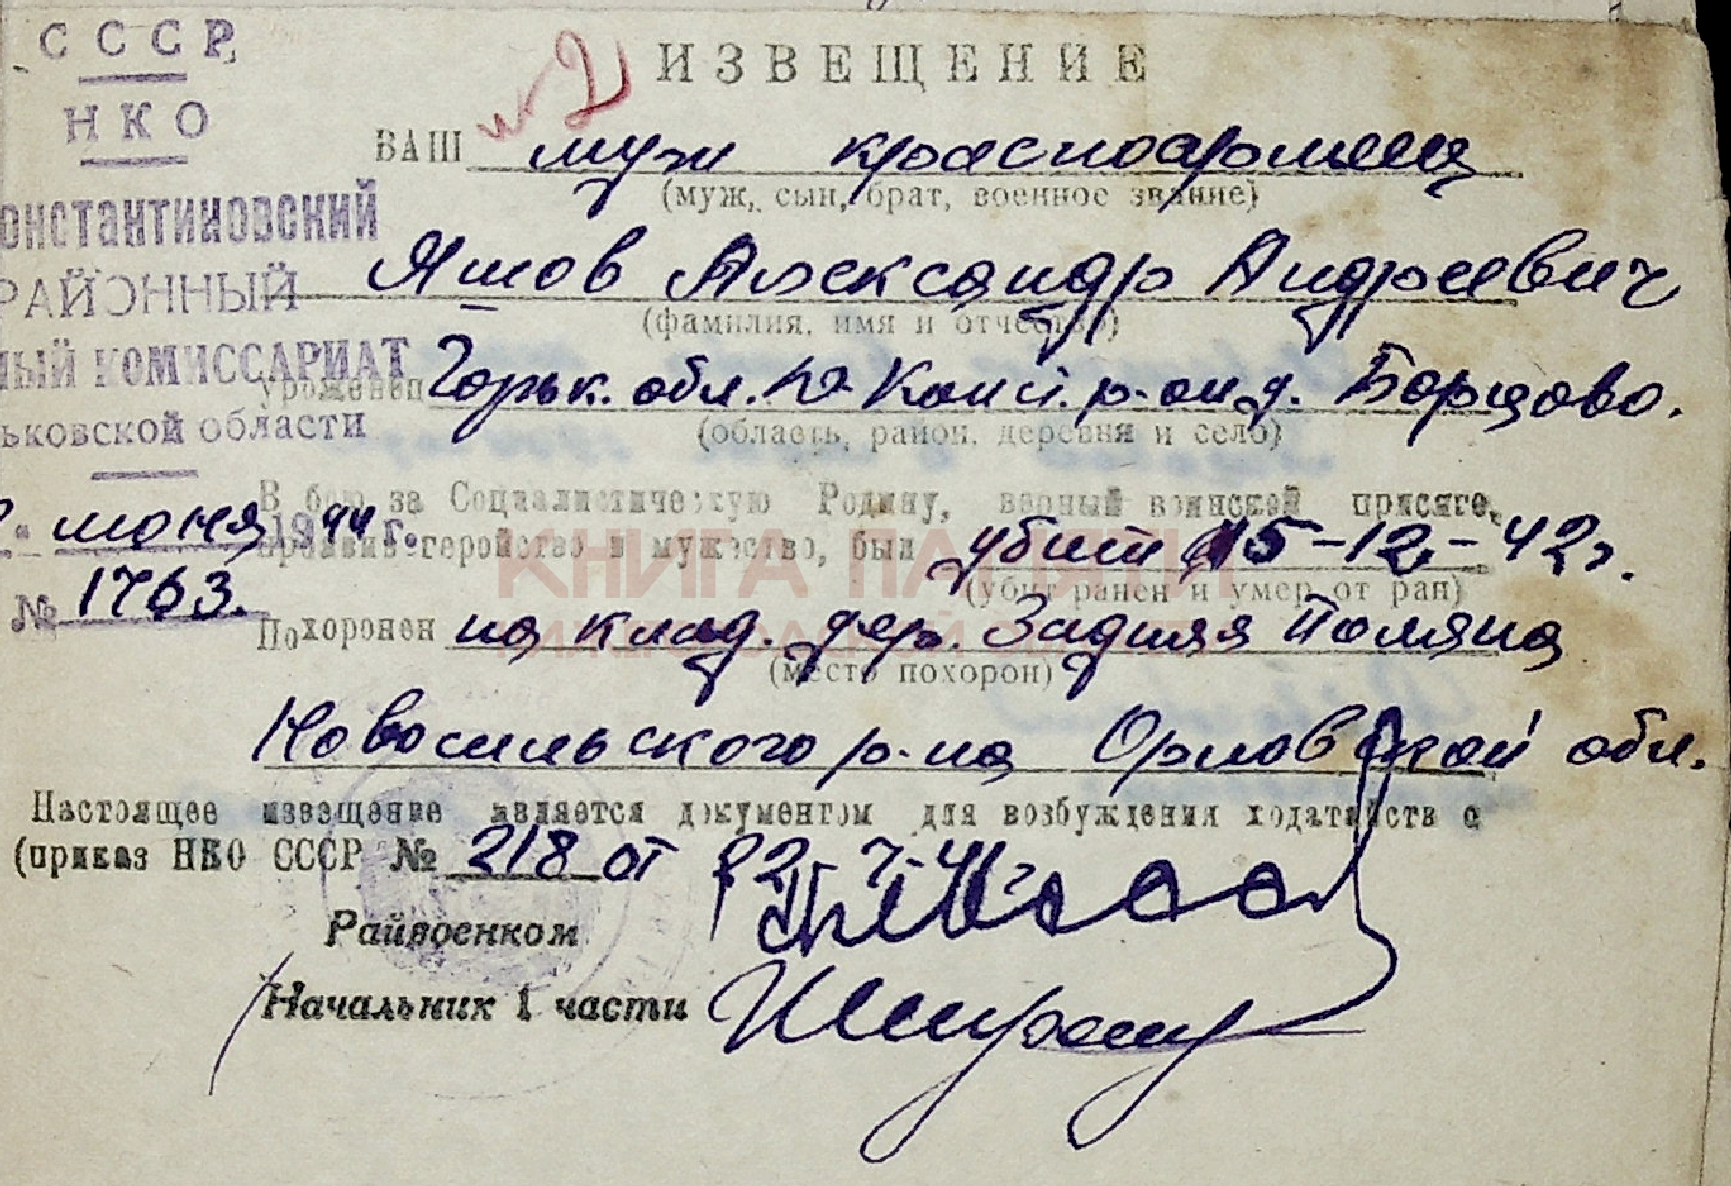 СССР
НКО
ОНСТАНТИНОВСКИЙ
РАЙОННЫЙ
НЫЙ КОМИССАРИАТ
ьковской области
июня 1944 г.
№ 1763.
№ 2
ИЗВЕЩЕНИЕ
ВАШ муж красноармеец
(муж, сын, брат, военное звание)
Яшов Александр Андреевич
(фамилия, имя и отчество)
уроженец Горьк. обл. р-н д. Борцово.
(область, район, деревня и село)
В бою за Социалистическую Родину, верный воинской присяге,
проявив геройство и мужество, был убит 15-12-42г.
(убит ранен и умер от ран)
Похоронен на клад. дер. Задняя Поляна
(место похорон)
Новосильского р-на Орловской обл.
Настоящее извещение является документом для возбуждения ходатайств о
(приказ НКО СССР № 218 от
Райвоенком
Начальник 1 части
КНИГА ПАМЯТИ